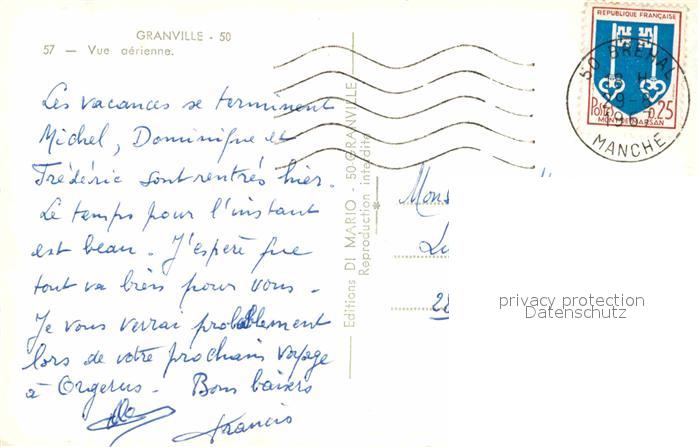 GRANVILLE - 50
57 — Vue aérienne.
Les vacances se terminent
Michel, Dominique et
Frédéric sont rentrés hier.
Le temps pour l'instant
est beau. J'espère que
tout va bien pour vous.
Je vous verrai probablement
lors de votre prochain voyage
à Orgerus. Bons baisers
Francis
Editions DI MARIO - 50-GRANVILLE
Reproduction interdite
REPUBLIQUE FRANÇAISE
POSTES 0.25
MONT-DE-MARSAN
50 BREHAL
MANCHE
Mons
privacy protection
Datenschutz